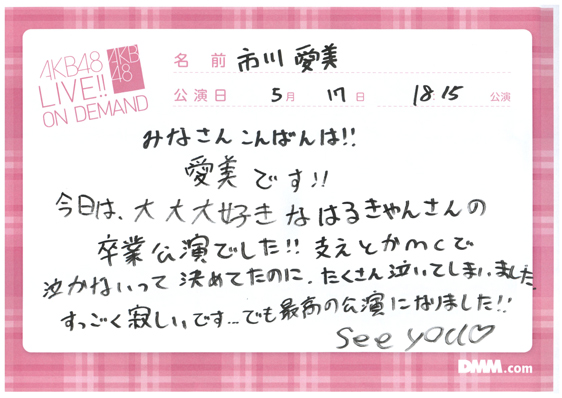 AKB48
LIVE!!
ON DEMAND
AKB
48
名 前 市川 愛美
公演日 5月 17日 18:15 公演
みなさんこんばんは!!
愛美です!!
今日は、大大大好きなはるきゃんさんの
卒業公演でした!! 支えとかmcで
泣かないって決めてたのに、たくさん泣いてしまいました
すっごく寂しいです...でも最高の公演になりました!!
see you♡
DMM.com